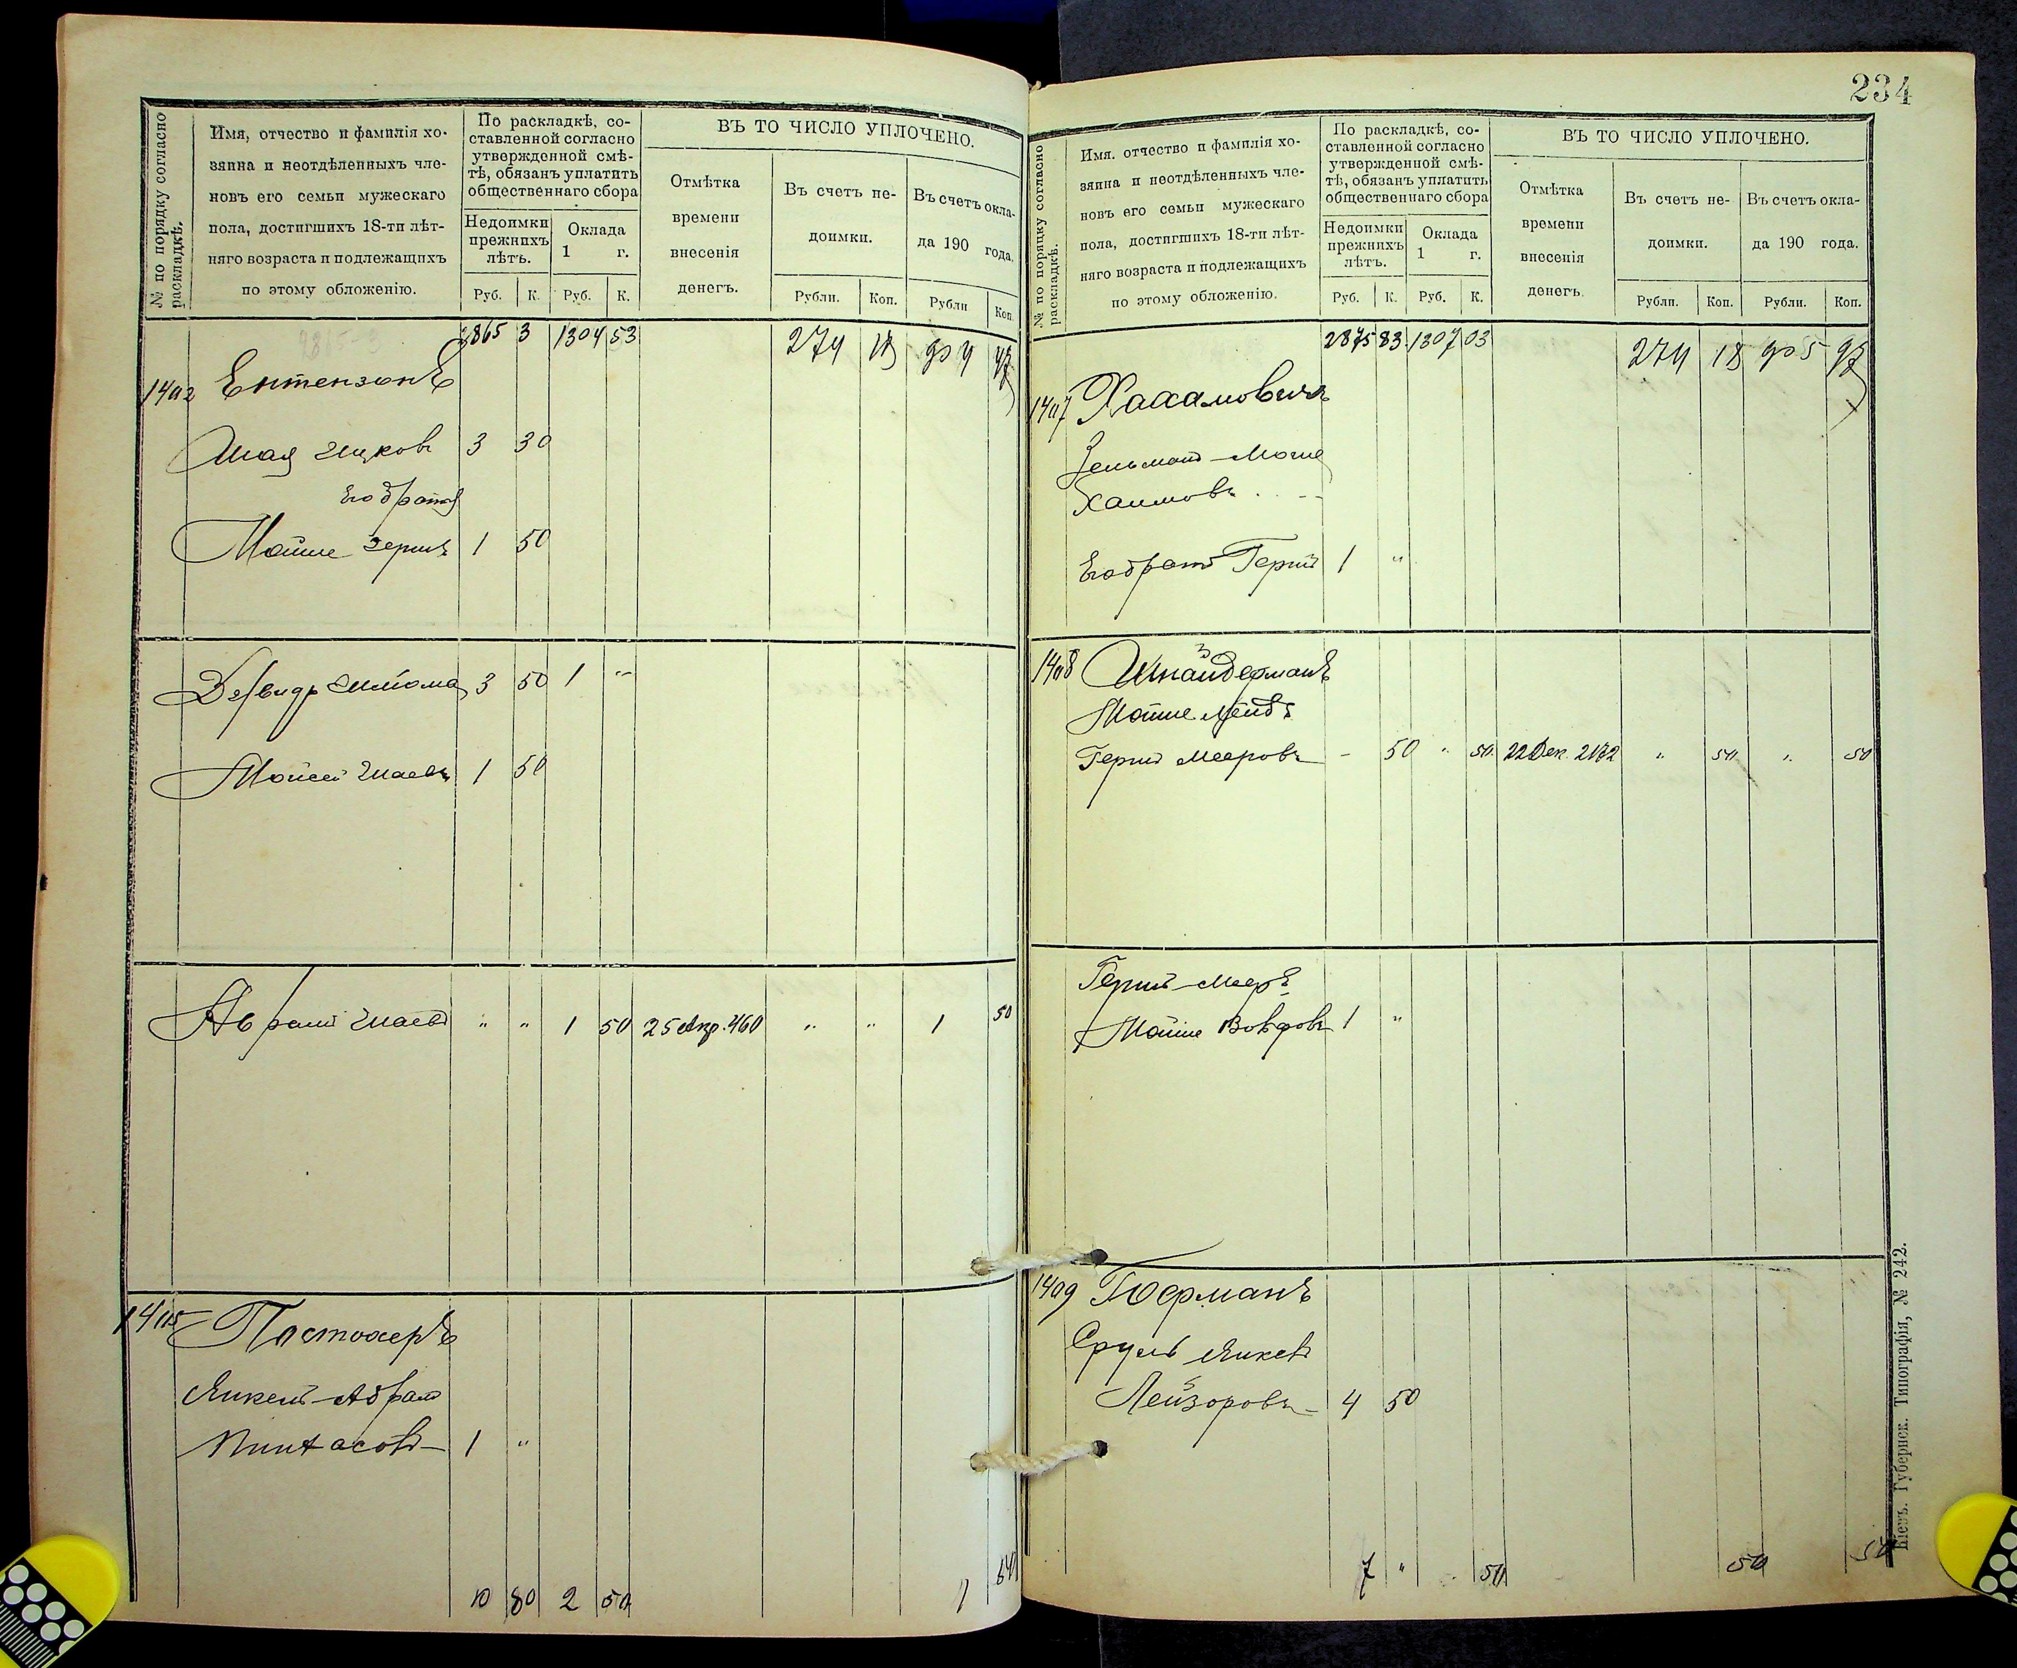 № по порядку согласно раскладкѣ.
Имя, отчество и фамилія хо-
зяина и неотдѣленныхъ чле-
новъ его семьи мужескаго
пола, достигшихъ 18-ти лѣт-
няго возраста и подлежащихъ
по этому обложенію.
По раскладкѣ, со-
ставленной согласно
утвержденной смѣ-
тѣ, обязанъ уплатить
общественнаго сбора
Недоимки
прежнихъ
лѣтъ.
Оклада
1 г.
Руб. К. Руб. К.
ВЪ ТО ЧИСЛО УПЛОЧЕНО.
Отмѣтка
времени
внесенія
денегъ.
Въ счетъ не-
доимки.
Въ счетъ окла-
да 190 года.
Рубли. Коп. Рубли Коп.
2865 3 1304 53 274 18
Ентензонъ
Шая Ицковъ 3 30
Его братья
Мойше Гершъ 1 50
3 50 1 "
Мойсей Шаевъ 1 50
Абрамъ Шаевъ " " 1 50 25 Апр. 460 " " 1 50
1405 Пастохеръ
Янкель-Абрам
Пинхасовъ 1 "
10 80 2 50 1 50
234
№ по порядку согласно раскладкѣ.
Имя. отчество и фамилія хо-
зяина и неотдѣленныхъ чле-
новъ его семьи мужескаго
пола, достигшихъ 18-ти лѣт-
няго возраста и подлежащихъ
по этому обложенію.
По раскладкѣ, со-
ставленной согласно
утвержденной смѣ-
тѣ, обязанъ уплатить
общественнаго сбора
Недоимки
прежнихъ
лѣтъ.
Оклада
1 г.
Руб. К. Руб. К.
ВЪ ТО ЧИСЛО УПЛОЧЕНО.
Отмѣтка
времени
внесенія
денегъ.
Въ счетъ не-
доимки.
Въ счетъ окла-
да 190 года.
Рубли. Коп. Рубли. Коп.
2875 83 1307 03 274 18 905 97
1407 Хахамовичъ
Зельман-Мойше
Хаимовъ
Его братъ Герш 1 "
1408 Шнайдерманъ
Мойше Лейбъ
Герш Мееровъ - 50 " 50 22 Дек. 2172 " 50 " 50
Герш-Мееръ
Мойше Вольфовъ 1 "
1409 Гоферманъ
Сруль Янкель
Лейзоровъ - 4 50
7 " 50 50 50
Кіевъ. Губернск. Типографія, № 242.